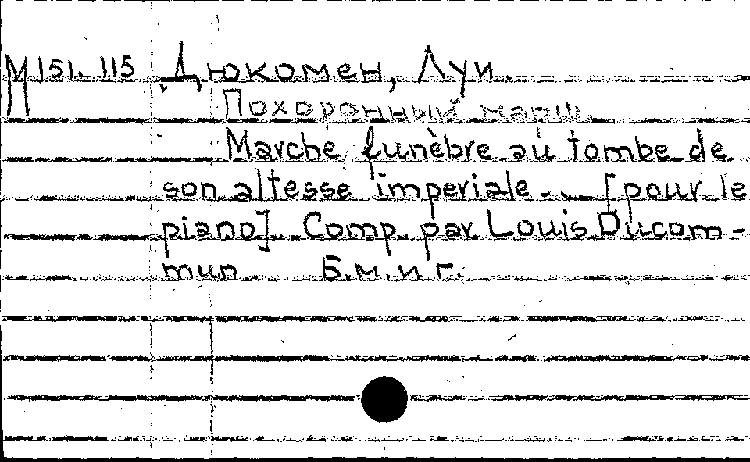 М 151.115 Дюкомен, Луи.
Похоронный марш.
Marche funèbre au tombe de
son altesse imperiale... [pour le
piano]. Comp. par Louis Ducom-
mun Б.м.и г.